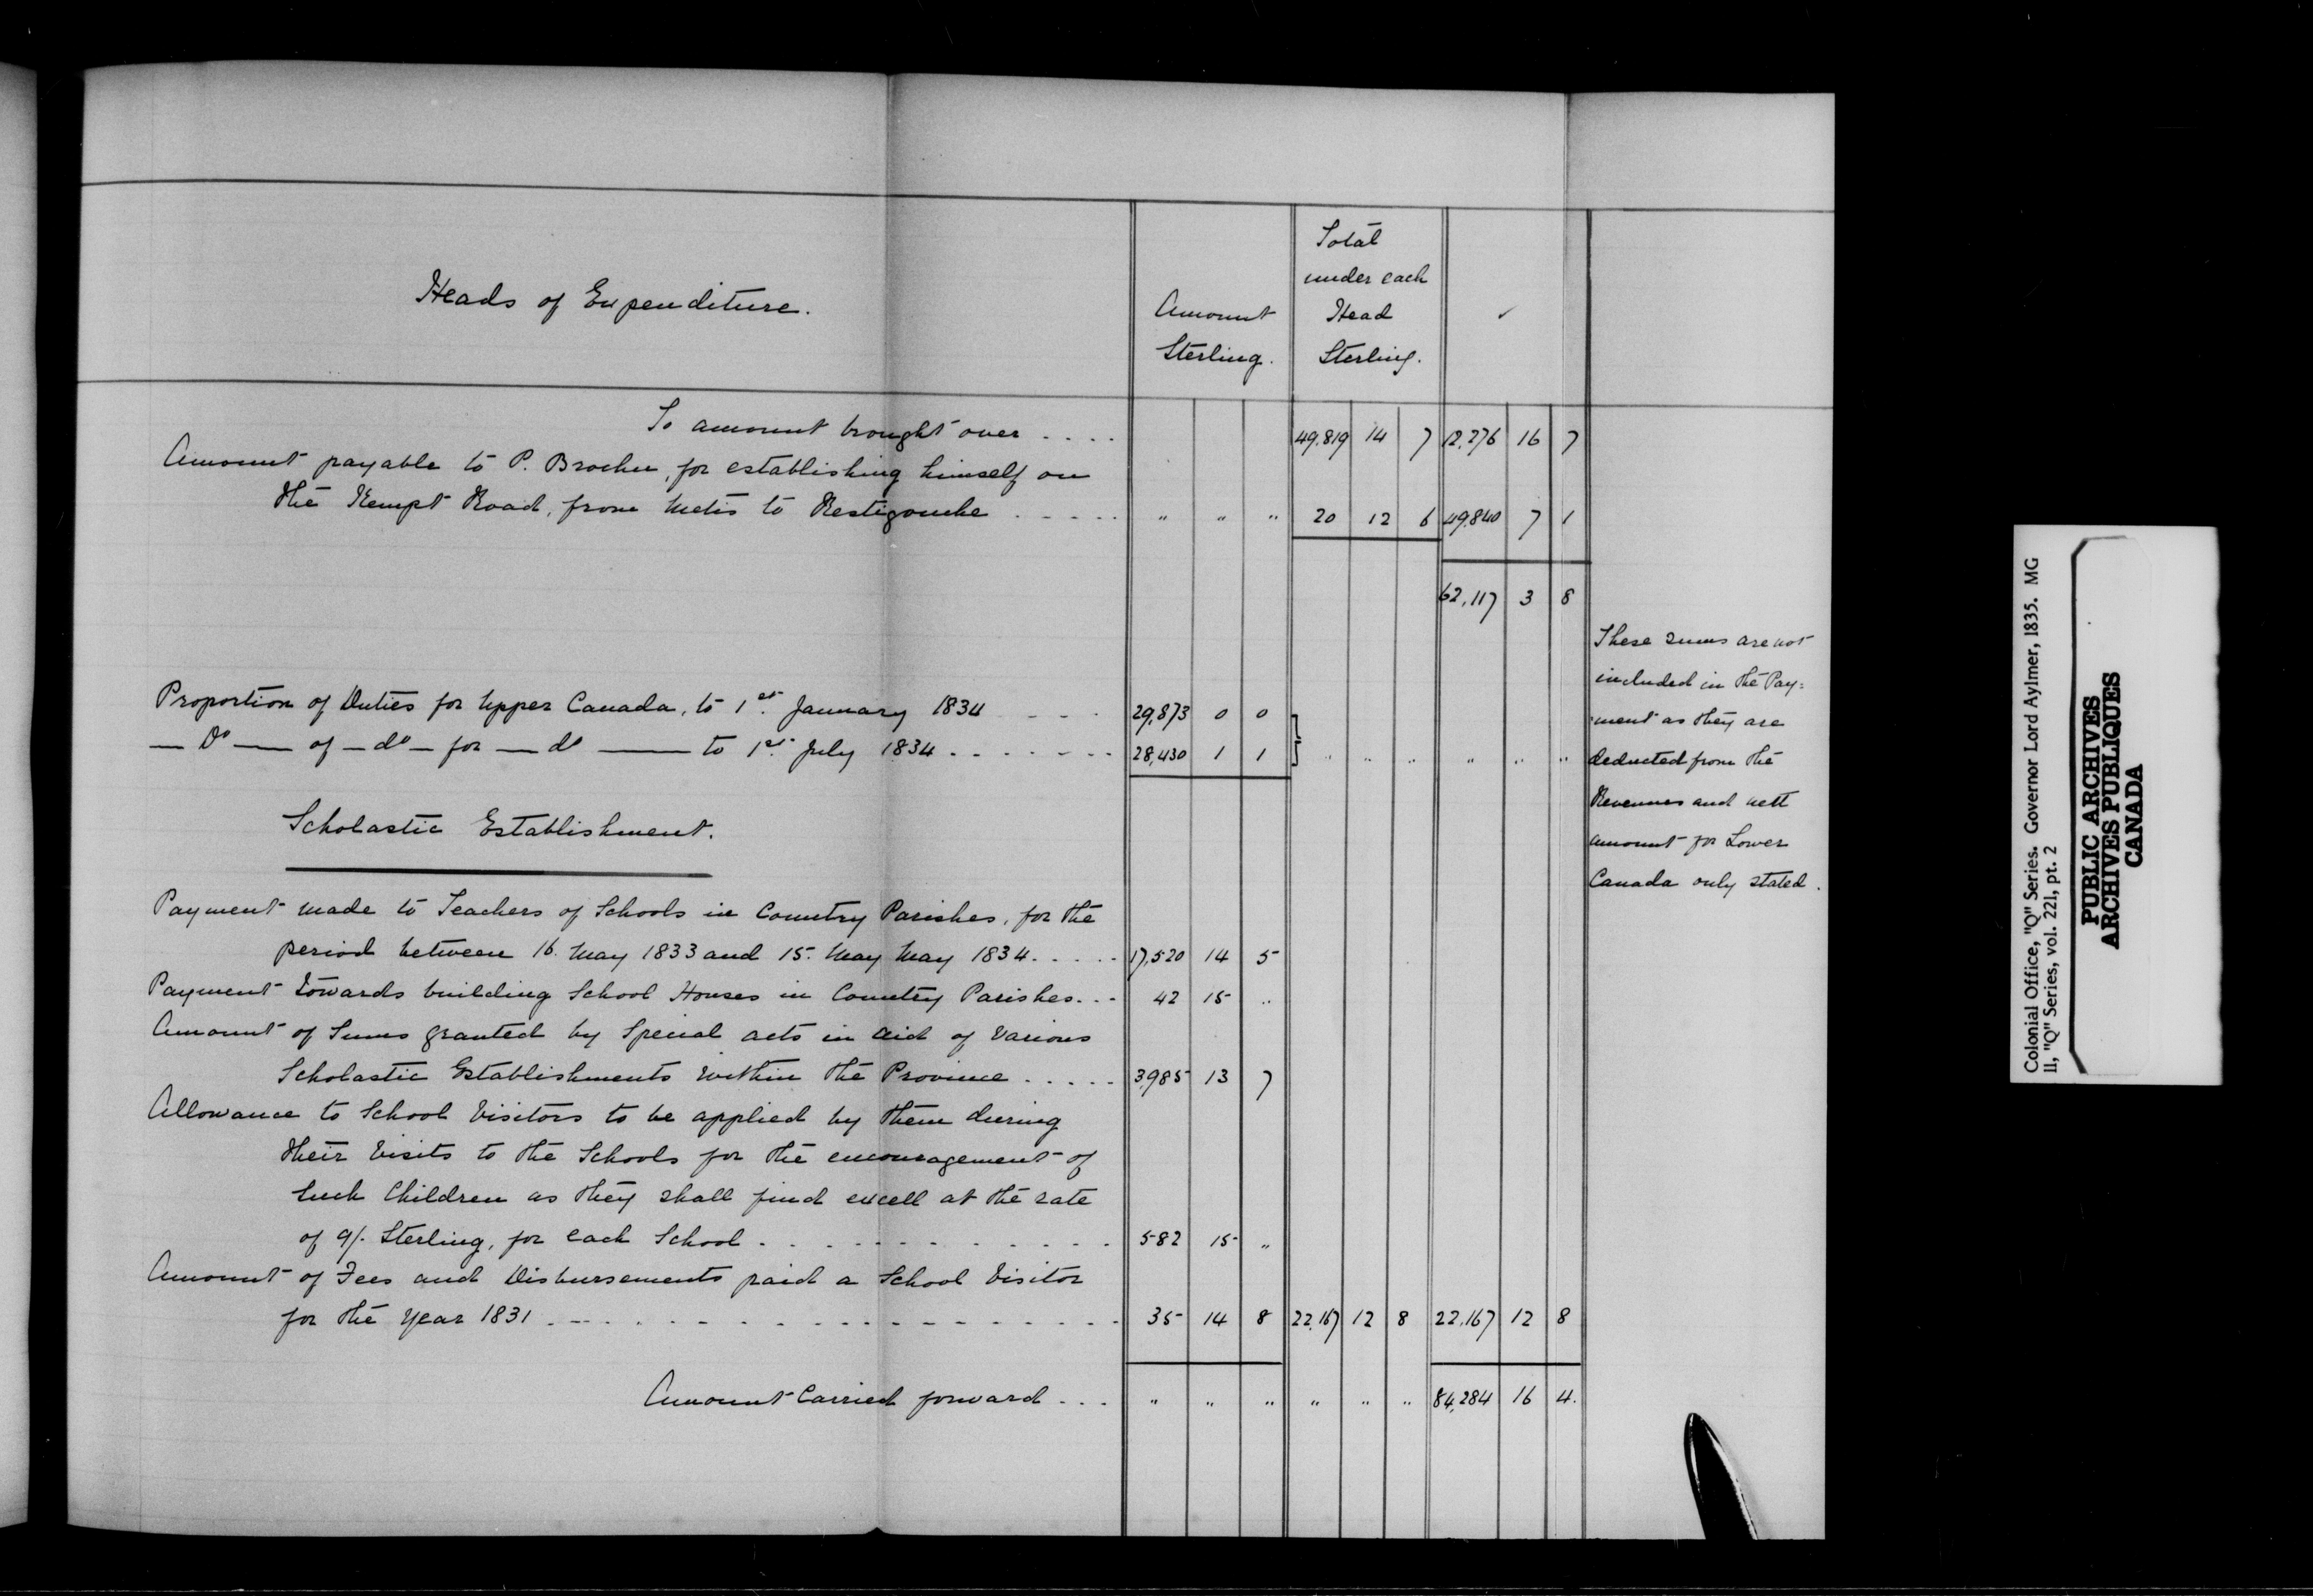 Heads of Expenditure.
Amount
Sterling.
Total
under each
Head
Sterling.
To amount brought over .... 49,819 14 7 12,276 16 7
Amount payable to P. Brochu, for establishing himself on
the Kempt Road, from Metis to Restigouche ..... " " " 20 12 6 49,840 7 1
62,117 3 8
Proportion of Duties for Upper Canada, to 1st January 1834 .... 29,873 0 0
— Do — of — do — for — do — to 1st July 1834 ....... 28,430 1 1 " " " " " "
These sums are not
included in the Pay=
ment as they are
deducted from the
Revenues and nett
amount for Lower
Canada only stated.
Scholastic Establishment.
Payment made to Teachers of Schools in Country Parishes, for the
period between 16. May 1833 and 15. May May 1834 ..... 17,520 14 5
Payment towards building School Houses in Country Parishes... 42 15 "
Amount of Sums granted by Special acts in aid of various
Scholastic Establishments within the Province ..... 3,985 13 7
Allowance to School Visitors to be applied by them during
their visits to the Schools for the encouragement of
such Children as they shall find excell at the rate
of 9/. Sterling, for each School ............ 582 15 "
Amount of Fees and Disbursements paid a School Visitor
for the Year 1831 .................. 35 14 8 22,167 12 8 22,167 12 8
Amount Carried forward ... " " " " " " 84,284 16 4.
Colonial Office, "Q" Series. Governor Lord Aylmer, 1835. MG
11, "Q" Series, vol. 221, pt. 2
PUBLIC ARCHIVES
ARCHIVES PUBLIQUES
CANADA